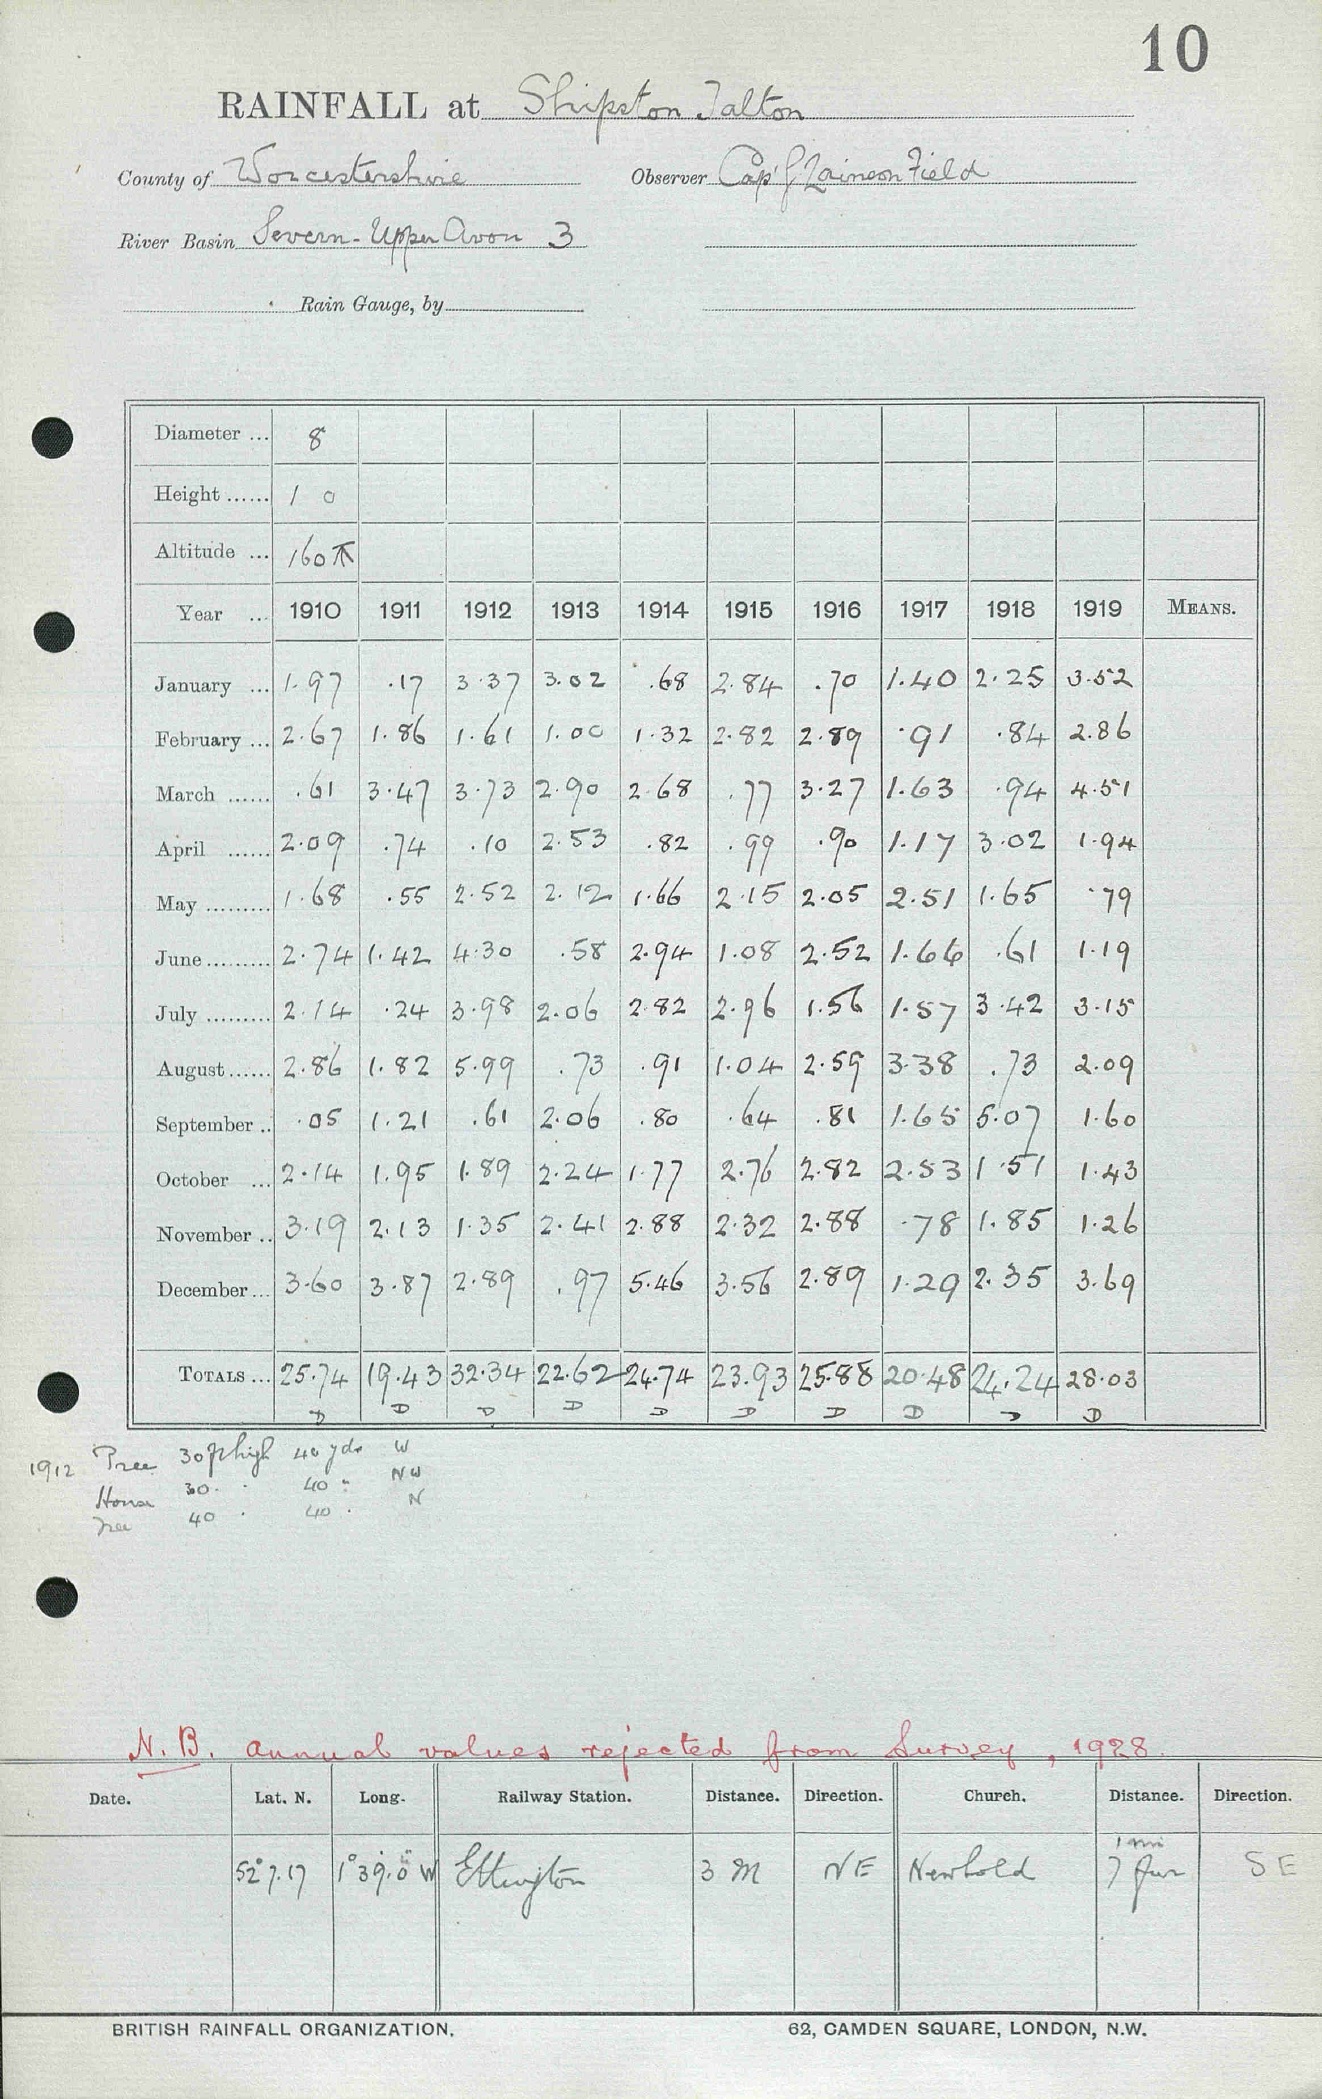 10
RAINFALL at Shipston Talton
County of Worcestershire Observer Capt Field
River Basin Severn - Upper Avon 3
Rain Gauge, by
Diameter ... 8
Height ...... 1 0
Altitude ... 160
Year ... 1910 1911 1912 1913 1914 1915 1916 1917 1918 1919 MEANS.
January ... 1.97 .17 3.37 3.02 .68 2.84 .70 1.40 2.25 3.52
February ... 2.67 1.86 1.61 1.00 1.32 2.82 2.89 .91 .84 2.86
March ...... .61 3.47 3.73 2.90 2.68 .77 3.27 1.63 .94 4.51
April ...... 2.09 .74 .10 2.53 .82 .99 .90 1.17 3.02 1.94
May ......... 1.68 .55 2.52 2.12 1.66 2.15 2.05 2.51 1.65 .79
June ......... 2.74 1.42 4.30 .58 2.94 1.08 2.52 1.66 .61 1.19
July ......... 2.14 .24 3.98 2.06 2.82 2.96 1.56 1.57 3.42 3.15
August ...... 2.86 1.82 5.99 .73 .91 1.04 2.59 3.38 .73 2.09
September .. .05 1.21 .61 2.06 .80 .64 .81 1.65 5.07 1.60
October ... 2.14 1.95 1.89 2.24 1.77 2.76 2.82 2.53 1.51 1.43
November .. 3.19 2.13 1.35 2.41 2.88 2.32 2.88 .78 1.85 1.26
December ... 3.60 3.87 2.89 .97 5.46 3.56 2.89 1.29 2.35 3.69
TOTALS ... 25.74 19.43 32.34 22.62 24.74 23.93 25.88 20.48 24.24 28.03
D D D D D D D D D D
1912 Tree 30 ft high 40 yds W
House 30 " 40 " NW
Tree 40 " 40 " N
N.B. annual values rejected from Survey, 1928.
Date. Lat. N. Long. Railway Station. Distance. Direction. Church. Distance. Direction.
52° 7.17 1° 39.0 W Ettington 3 M NE Newbold 1 mi 7 fur SE
BRITISH RAINFALL ORGANIZATION. 62, CAMDEN SQUARE, LONDON, N.W.